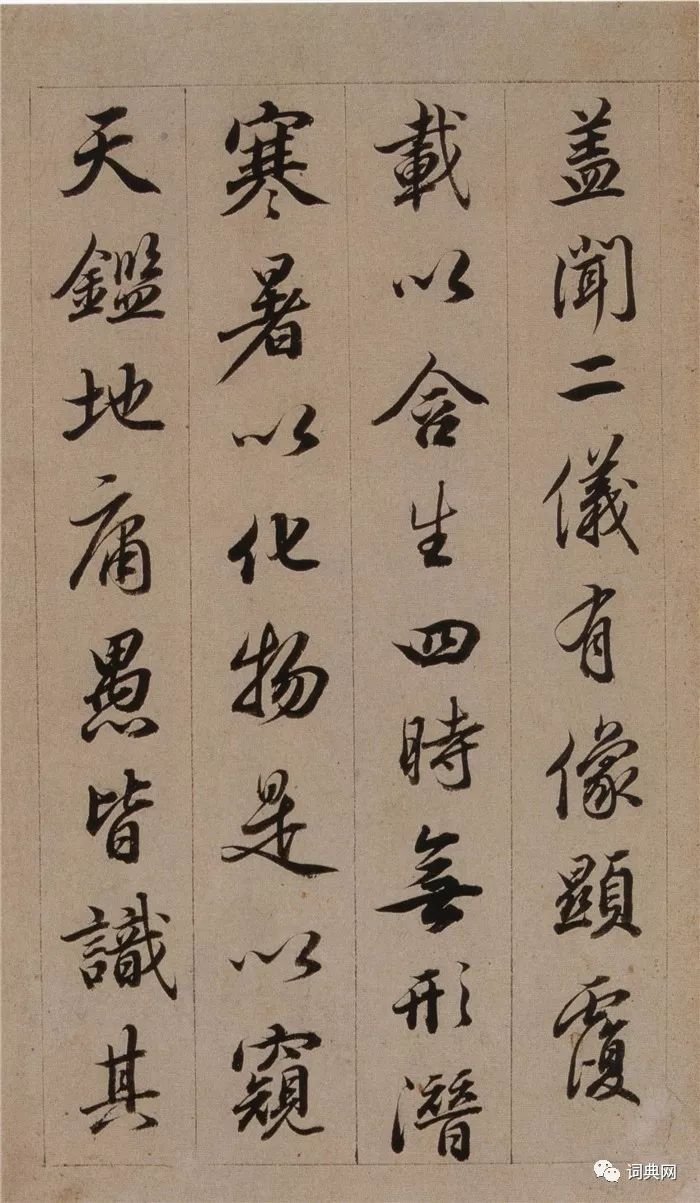 盖聞二儀有像顯覆
載以含生四時無形潛
寒暑以化物是以窺
天鑑地庸愚皆識其
词典网